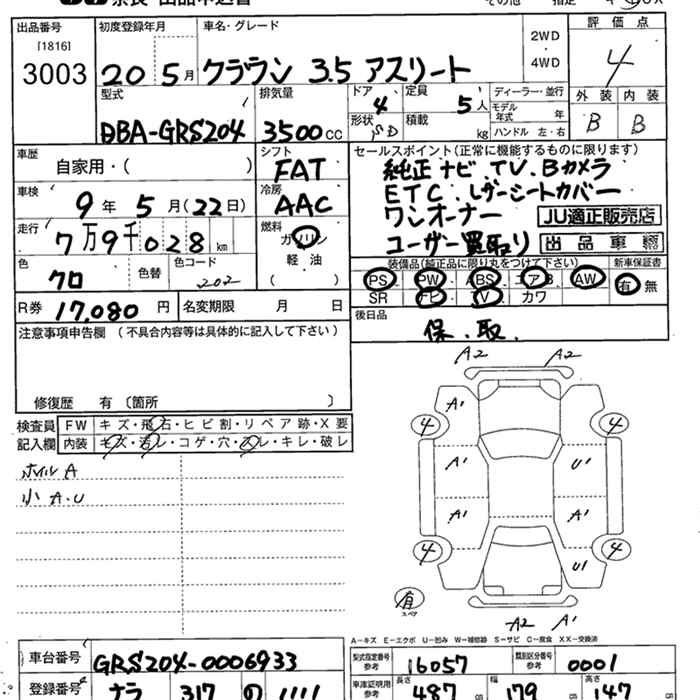 出品番号 初度登録年月 車名・グレード 評価点
[1816] 2WD
3003 20 5月 クラウン 3.5 アスリート ・ 4
4WD
外装 内装
B B
型式 排気量 ドア 4 定員 5人 ディーラー・並行
モデル年式 年
DBA-GRS204 3500cc 形状 SD 積載 kg ハンドル 左・右
車歴 シフト セールスポイント(正常に機能するものに限ります)
自家用・( ) FAT 純正ナビ.TV.Bカメラ
車検 冷房 ETC.レザーシートカバー
9年 5月(22日) AAC ワンオーナー JU適正販売店
走行 燃料 ユーザー買取り 出品車輌
7万9千028km ガソリン
軽油
( )
色 色替 色コード 装備品(純正品に限り丸をつけて下さい) 新車保証書
クロ 202 PS PW ABS エアB AW 有 無
SR ナビ TV カワ
R券 17,080円 名変期限 月 日 後日品
保.取.
注意事項申告欄 (不具合内容等は具体的に記入して下さい)
修復歴 有〔箇所 〕
検査員 FW キズ・飛石・ヒビ割・リペア跡・X要
記入欄 内装 キズ・汚レ・コゲ・穴・スレ・キレ・破レ
ホイルA
小 A.U
A2 A2
A1
4 4
A1 U1
A1 A1
4 4
U1
有
スペア
A2 A1
A-キズ E-エクボ U-凹み W-補修跡 S-サビ C-腐食 XX-交換済
車台番号 GRS204-0006933 型式指定番号 参考 16057 類別区分番号 参考 0001
登録番号 ナラ 317 の 1111 車庫証明用 参考 長さ 487 幅 179 高さ 147